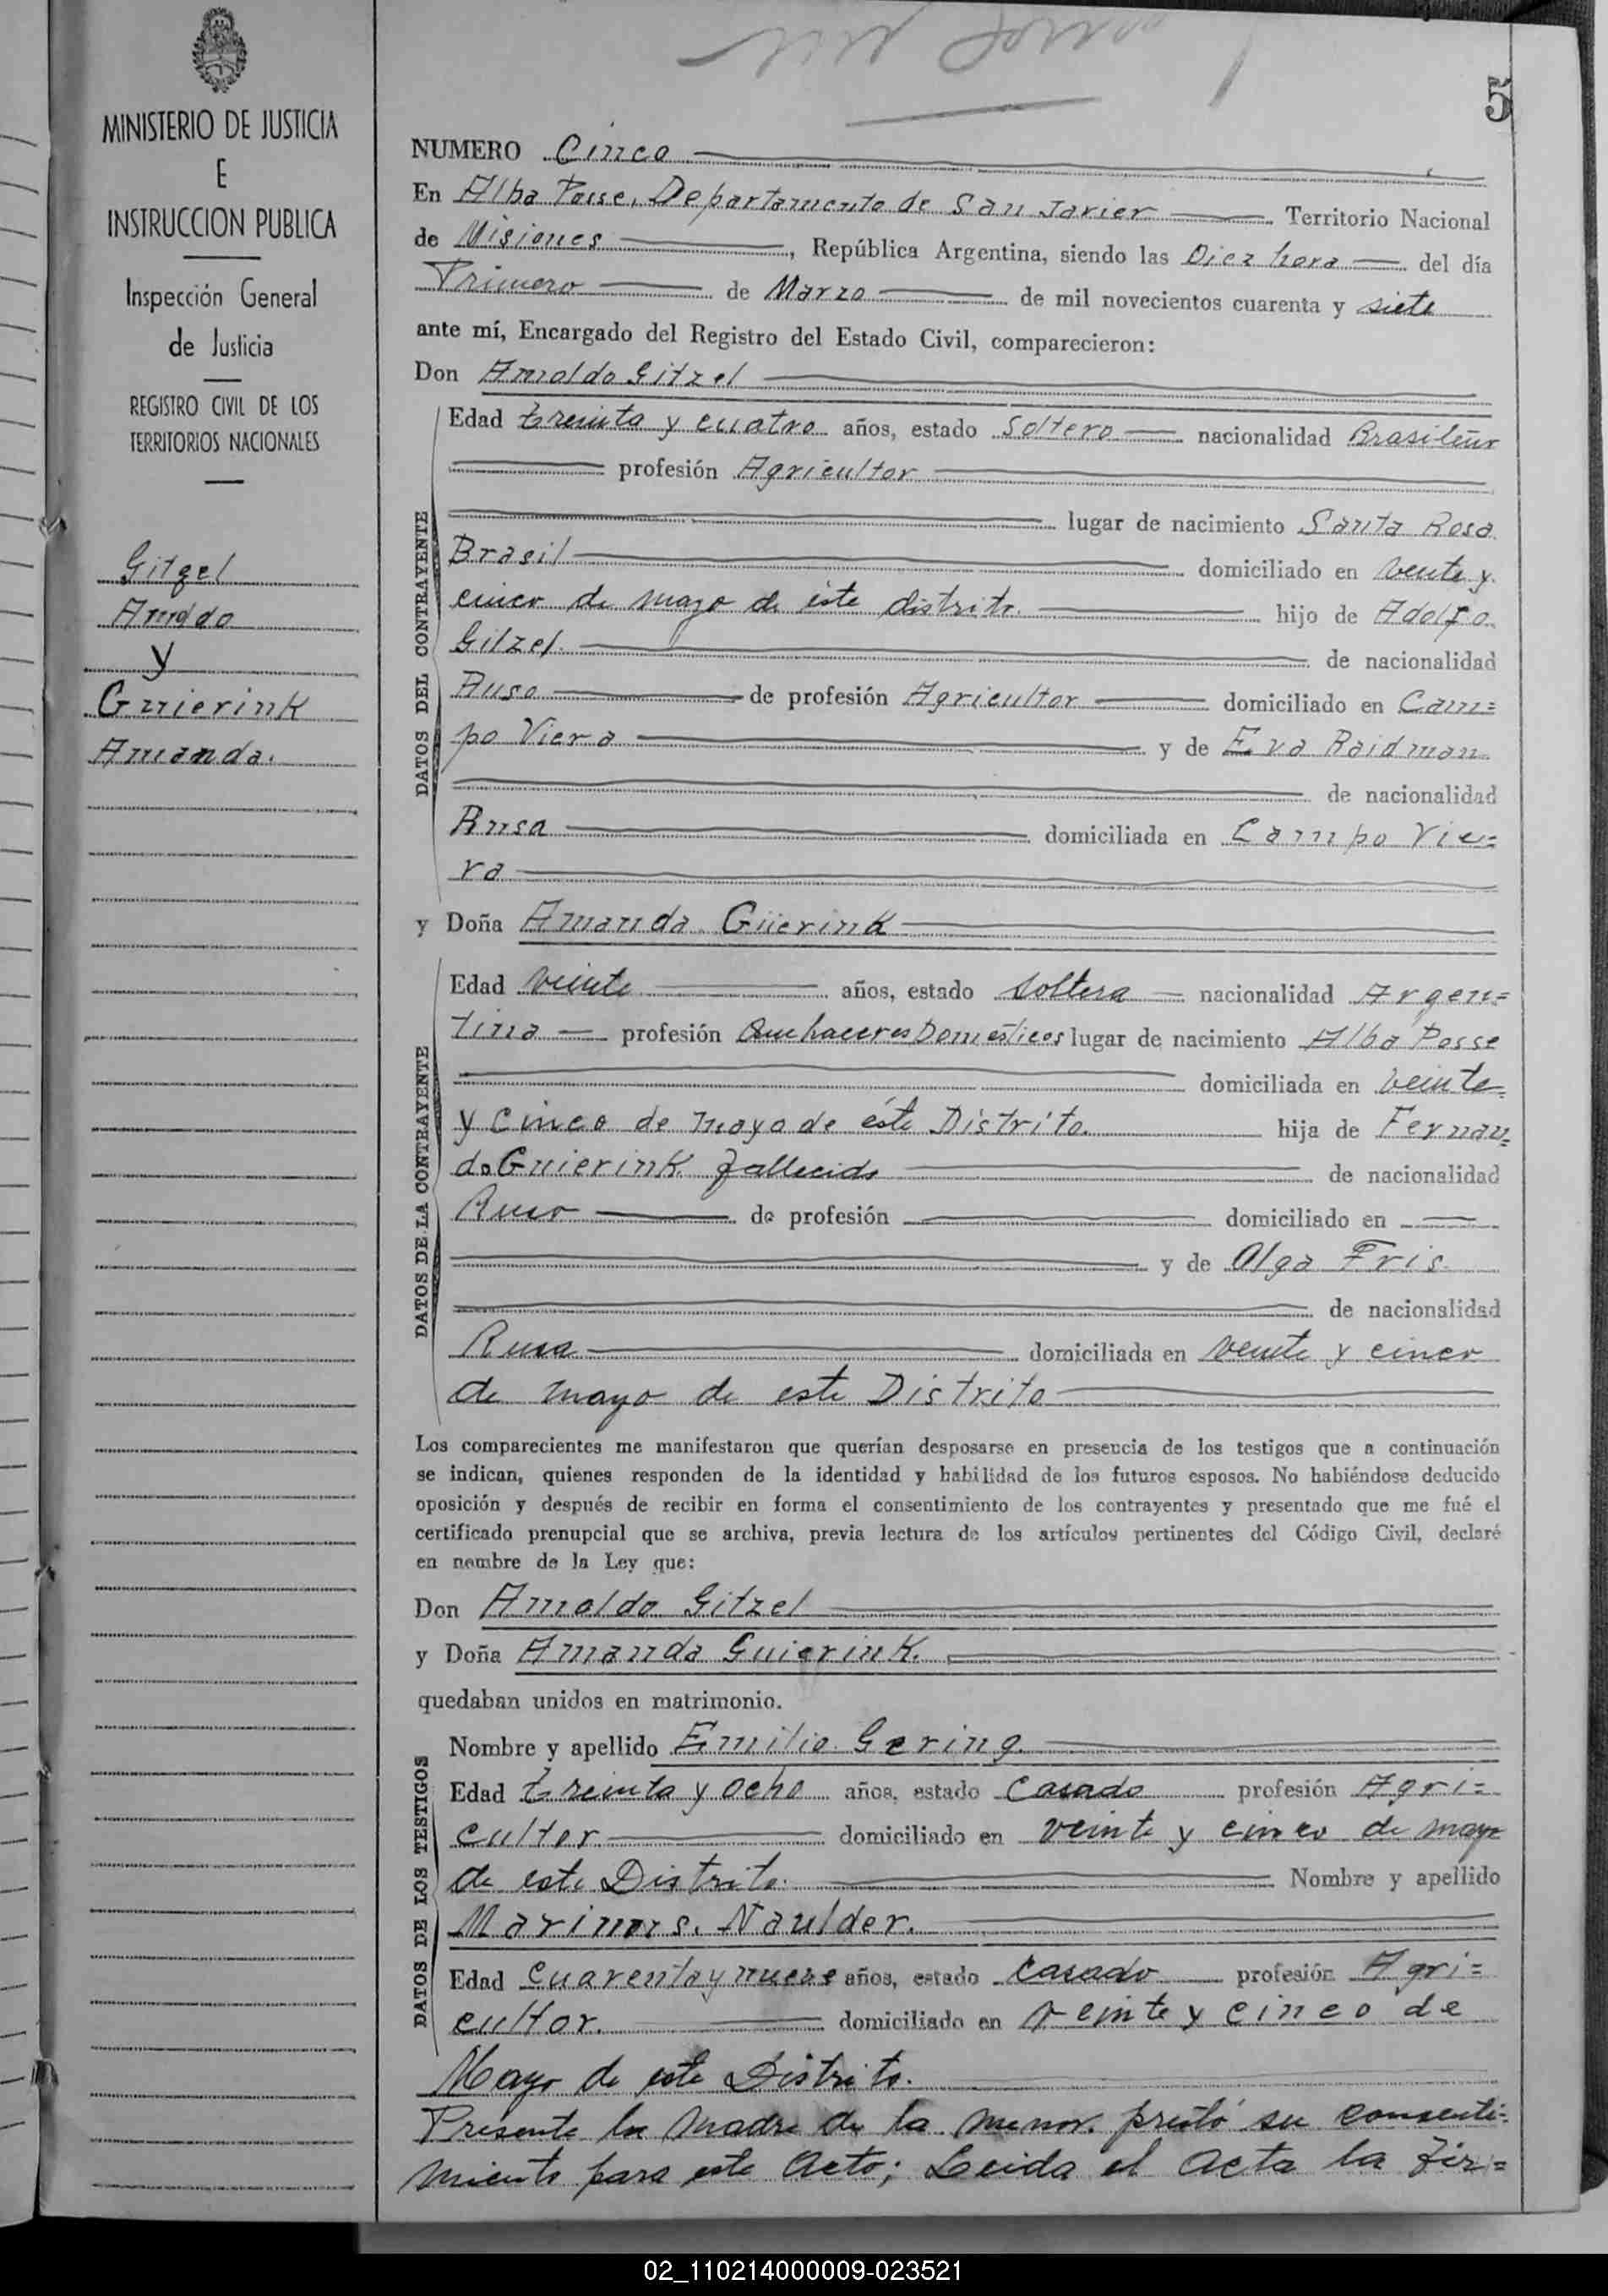 5
MINISTERIO DE JUSTICIA
E
INSTRUCCION PUBLICA
Inspección General
de Justicia
REGISTRO CIVIL DE LOS
TERRITORIOS NACIONALES
Gitzel
Arnoldo
y
Guierink
Amanda.
NUMERO Cinco
En Alba Posse, Departamento de San Javier Territorio Nacional
de Misiones, República Argentina, siendo las Diez hora del día
Primero de Marzo de mil novecientos cuarenta y siete
ante mí, Encargado del Registro del Estado Civil, comparecieron:
Don Arnoldo Gitzel
DATOS DEL CONTRAYENTE
Edad treinta y cuatro años, estado Soltero nacionalidad Brasileño
profesión Agricultor
lugar de nacimiento Santa Rosa
Brasil domiciliado en veinte y
cinco de mayo de éste distrito. hijo de Adolfo
Gitzel. de nacionalidad
Ruso de profesión Agricultor domiciliado en Cam=
po Viera y de Eva Raidman
de nacionalidad
Rusa domiciliada en Campo Vie=
ra
y Doña Amanda Güierink
DATOS DE LA CONTRAYENTE
Edad veinte años, estado soltera nacionalidad Argen=
tina profesión Quehaceres Domésticos lugar de nacimiento Alba Posse
domiciliada en veinte
y cinco de mayo de éste Distrito. hija de Fernan=
do Guierink fallecido de nacionalidad
Ruso de profesión domiciliado en
y de Olga Fris
de nacionalidad
Rusa domiciliada en veinte y cinco
de mayo de este Distrito
Los comparecientes me manifestaron que querían desposarse en presencia de los testigos que a continuación
se indican, quienes responden de la identidad y habilidad de los futuros esposos. No habiéndose deducido
oposición y después de recibir en forma el consentimiento de los contrayentes y presentado que me fué el
certificado prenupcial que se archiva, previa lectura de los artículos pertinentes del Código Civil, declaré
en nombre de la Ley que:
Don Arnoldo Gitzel
y Doña Amanda Guierink.
quedaban unidos en matrimonio.
DATOS DE LOS TESTIGOS
Nombre y apellido Emilio Gering.
Edad treinta y ocho años, estado Casado profesión Agri=
cultor domiciliado en veinte y cinco de mayo
de este Distrito. Nombre y apellido
Naulder.
Edad cuarenta y nueve años, estado casado profesión Agri=
cultor. domiciliado en veinte y cinco de
Mayo de este Distrito.
Presente la madre de la menor prestó su consenti=
miento para este Acto; Leida el Acta la fir=
02_110214000009-023521